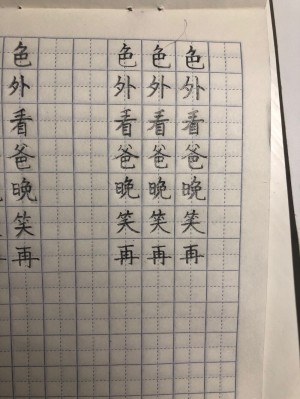 色 色 色 色
外 外 外 外
看 看 看 看
爸 爸 爸 爸
晚 晚 晚 晚
笑 笑 笑 笑
再 再 再 再